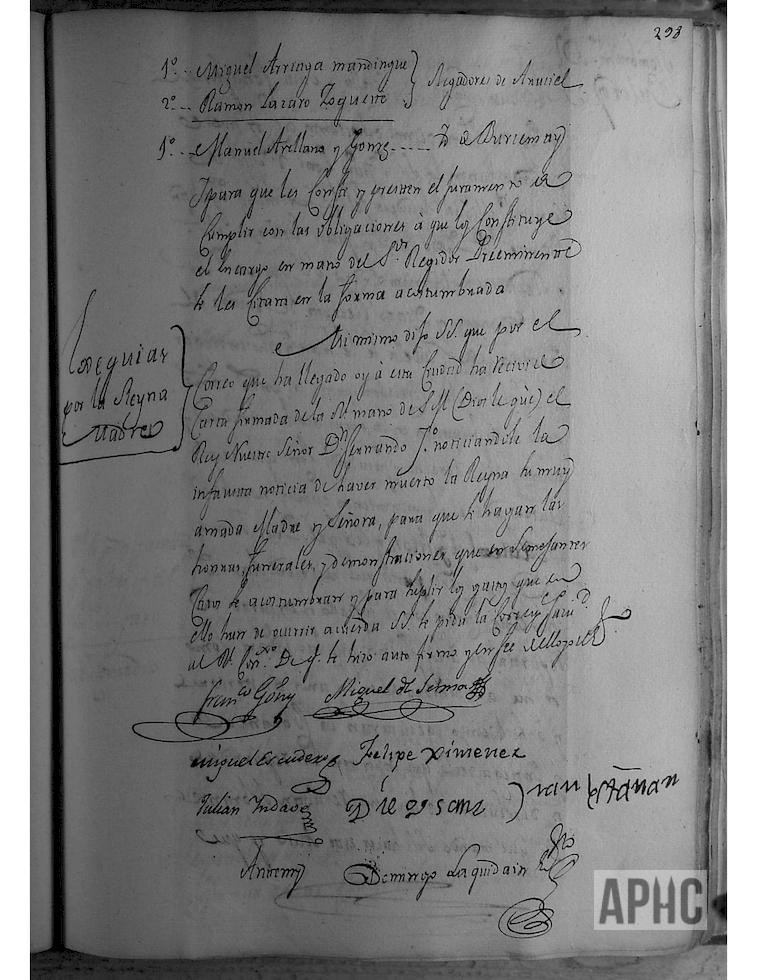 298
1º. Miguel Arriaga mandingue } Regadores de
2º. Ramon Lazaro Zoquero
1º. Manuel Arellano y Gonz
Ypara que les Conste y presten el Juramento de
Cumplir con las obligaciones à que los Constituye
el encargo en mano del S.or Regidor Preeminente
se les Citara en la forma acostumbrada
Exequias
por la Reyna
Madre
Asi mismo dijo SS. que por el
Correo que ha llegado oy à esta Ciudad ha Recivido
Carta firmada de la Rl mano de S M (Dios le gûe) el
Rey Nuestro Señor Dn Fernando 7.º noticiandole la
infausta noticia de haver muerto la Reyna su muy
amada Madre y Señora, para que se hagan las
honrras, funerales, y demonstraciones que en Semejantes
Casos se acostumbran y para suplir los gastos que en
ello han de ocurrir acuerda SS. se pida la
al Rl Con.xo De q. se hizo auto firmo y en fee dello yo el SS
Fran.co Goñy Miguel de Selma
Miguel Escudero Felipe Ximenez
Julian Yndave Diego Sanz Juan
Antemy Domingo Laquidain
APHC